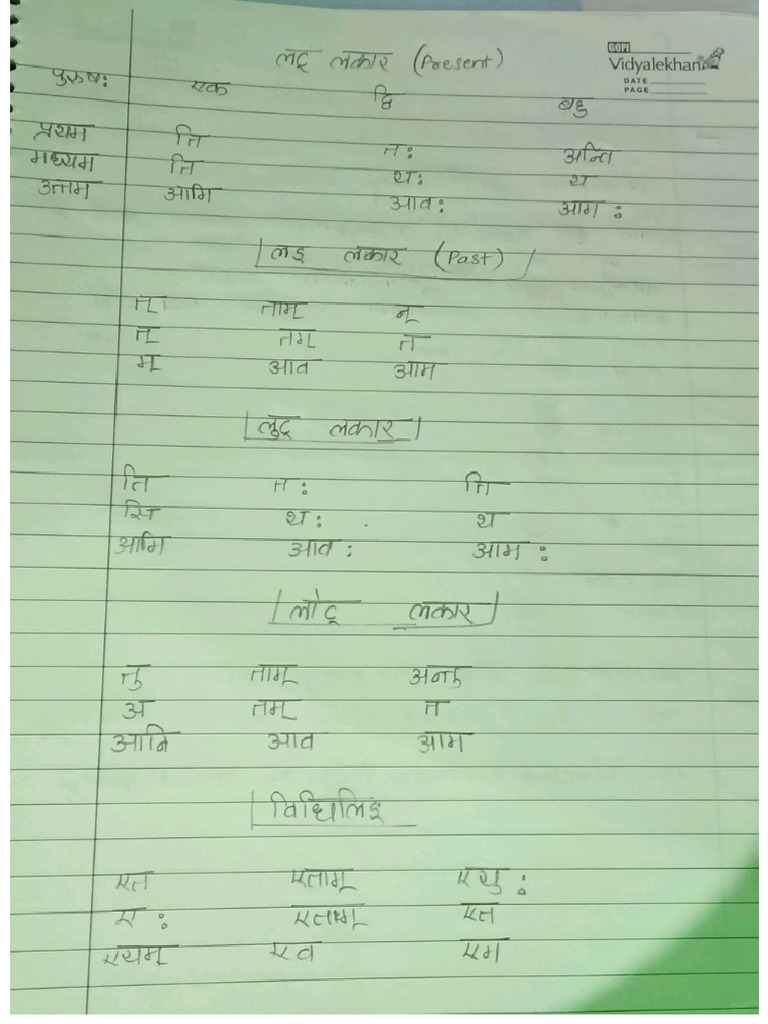 लट् लकार (Present)
GOPI
Vidyalekhan
DATE
PAGE
पुरुषः एक द्वि बहु
प्रथम ति तः अन्ति
मध्यम ति थः थ
उत्तम आमि आवः आमः
लङ् लकार (Past)
त् ताम् न्
त् तम् त
म् आव आम
लुट् लकार
ति तः न्ति
सि थः थ
आमि आवः आमः
लोट् लकार
तु ताम् अन्तु
अ तम् त
आनि आव आम
विधिलिङ्
एत एताम् एयुः
एः एतम् एत
एयम् एव एम